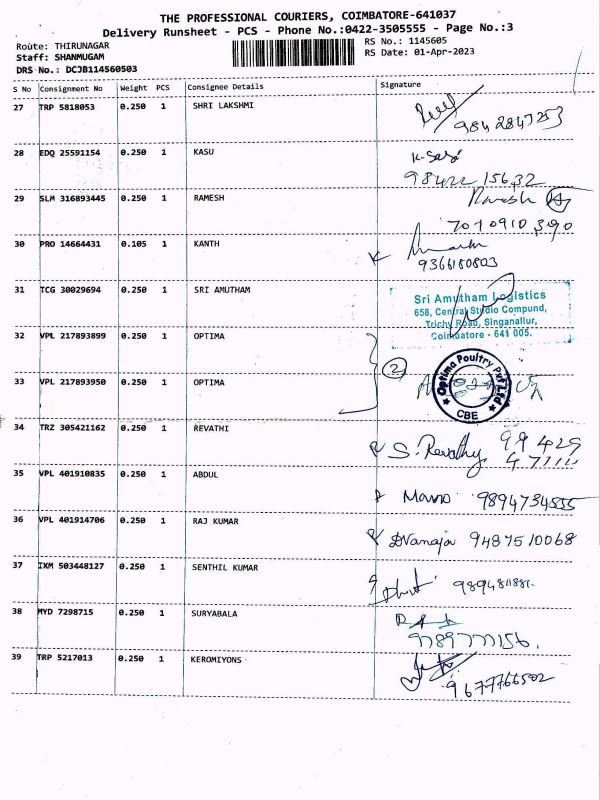 THE PROFESSIONAL COURIERS, COIMBATORE-641037
Delivery Runsheet - PCS - Phone No.:0422-3505555 - Page No.:3
Route: THIRUNAGAR RS No.: 1145605
Staff: SHANMUGAM RS Date: 01-Apr-2023
DRS No.: DCJB114560503
S No Consignment No Weight PCS Consignee Details Signature
27 TRP 5818053 0.250 1 SHRI LAKSHMI
9842847253
28 EDQ 25591154 0.250 1 KASU
9842215632
29 SLM 316893445 0.250 1 RAMESH Ramesh
7010910390
30 PRO 14664431 0.105 1 KANTH
9366180803
31 TCG 30029694 0.250 1 SRI AMUTHAM
Sri Amutham Logistics
658, Central Studio Compund,
Trichy Road, Singanallur,
Coimbatore - 641 005.
32 VPL 217893899 0.250 1 OPTIMA
2
Optima Poultry Pvt Ltd
CBE
33 VPL 217893950 0.250 1 OPTIMA
34 TRZ 305421162 0.250 1 REVATHI
S. Revathy 99429
35 VPL 401910835 0.250 1 ABDUL
9894734555
36 VPL 401914706 0.250 1 RAJ KUMAR
DVanaja 9487510068
37 IXM 503448127 0.250 1 SENTHIL KUMAR
38 MYD 7298715 0.250 1 SURYABALA
9789777156.
39 TRP 5217013 0.250 1 KEROMIYONS
9677766502